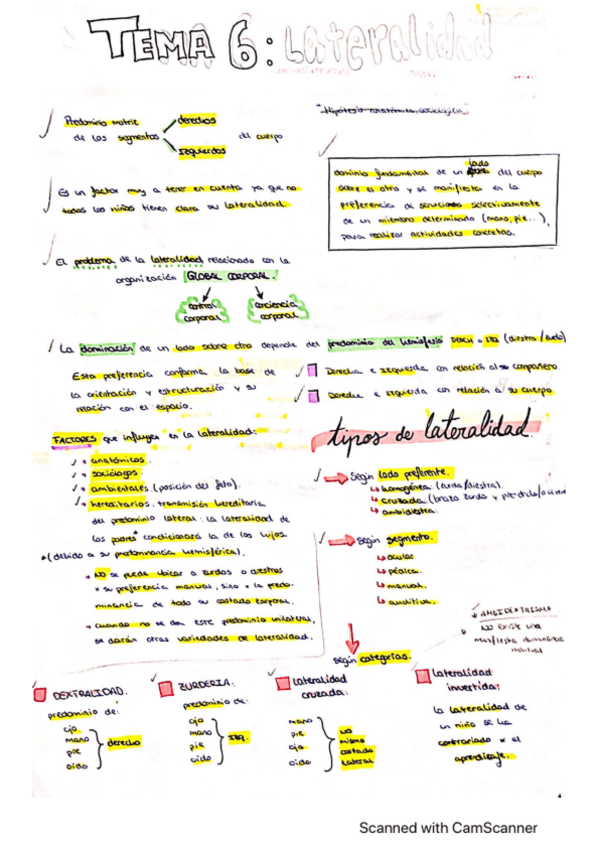 TEMA 6: Lateralidad
Predominio motriz
de los segmentos
derechos
izquierdos
del cuerpo
Es un factor muy a tener en cuenta ya que no
todos los niños tienen clara su lateralidad.
dominio fundamental de un lado del cuerpo
sobre el otro y se manifiesta en la
preferencia de servirnos selectivamente
de un miembro determinado (mano, pie...),
para realizar actividades concretas.
El problema de la lateralidad relacionado con la
organización GLOBAL CORPORAL.
control
corporal
conciencia
corporal
La dominación de un lado sobre otro depende del predominio del hemisferio DERCH o IZQ (diestro/zurdo)
Esta preferencia conforma la base de
la orientación y estructuración y su
relación con el espacio.
Derecha e izquierda con relación al su compañero.
Derecha e izquierda con relación a su cuerpo
FACTORES que influyen en la lateralidad:
anatómicos.
sociólogos
ambientales (posición del feto).
hereditarios. transmisión hereditaria
del predominio lateral: la lateralidad de
los padres condicionará la de los hijos
*(debido a su predominancia hemisférica).
NO se puede ubicar a zurdos o diestros
x su preferencia manual, sino x la predo-
minancia de todo su costado corporal.
cuando no se dan este predominio unilateral,
se darán otras variedades de lateralidad.
tipos de lateralidad.
Según lado preferente.
homogénea (zurda/diestra).
cruzada (brazo zurdo y pie drcho/o viceve
ambidiestra.
Según segmento.
ocular
pédica.
manual.
auditiva.
AMBIDEXTRISMO
NO EXISTE UNA
MANIFIESTA DOMINANCIA
MANUAL
según categorías.
DEXTRALIDAD.
predominio de:
ojo
mano
pie
oido
derecho
ZURDERIA:
predominio de:
ojo
mano
pie
oido
IZQ.
lateralidad
cruzada:
mano
pie
ojo
oido
NO
mismo
costado
lateral
lateralidad
invertida:
la lateralidad de
un niño se ha
contrariado x el
aprendizaje.
Scanned with CamScanner